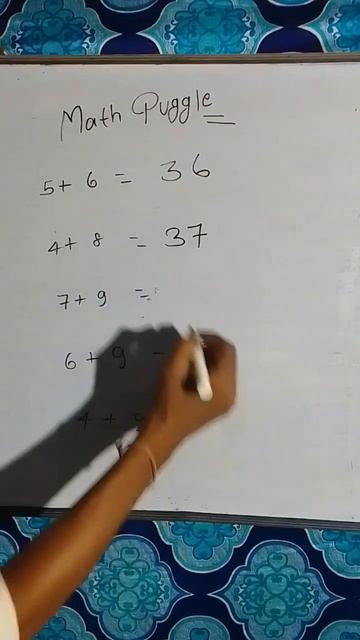 Math Puggle
5+ 6 = 36
4+ 8 = 37
7+ 9 =
6 + 9 =
4 +